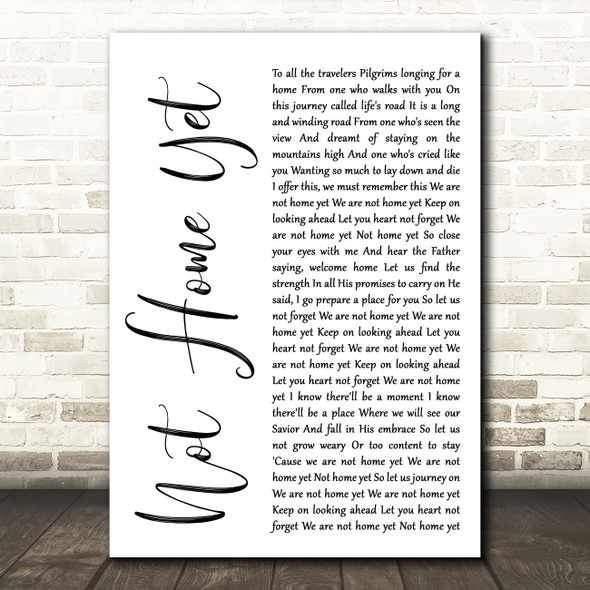 Not Home Yet
To all the travelers Pilgrims longing for a
home From one who walks with you On
this journey called life's road It is a long
and winding road From one who's seen the
view And dreamt of staying on the
mountains high And one who's cried like
you Wanting so much to lay down and die
I offer this, we must remember this We are
not home yet We are not home yet Keep on
looking ahead Let you heart not forget We
are not home yet Not home yet So close
your eyes with me And hear the Father
saying, welcome home Let us find the
strength In all His promises to carry on He
said, I go prepare a place for you So let us
not forget We are not home yet We are not
home yet Keep on looking ahead Let you
heart not forget We are not home yet We
are not home yet Keep on looking ahead
Let you heart not forget We are not home
yet I know there'll be a moment I know
there'll be a place Where we will see our
Savior And fall in His embrace So let us
not grow weary Or too content to stay
'Cause we are not home yet We are not
home yet Not home yet So let us journey on
We are not home yet We are not home yet
Keep on looking ahead Let you heart not
forget We are not home yet Not home yet